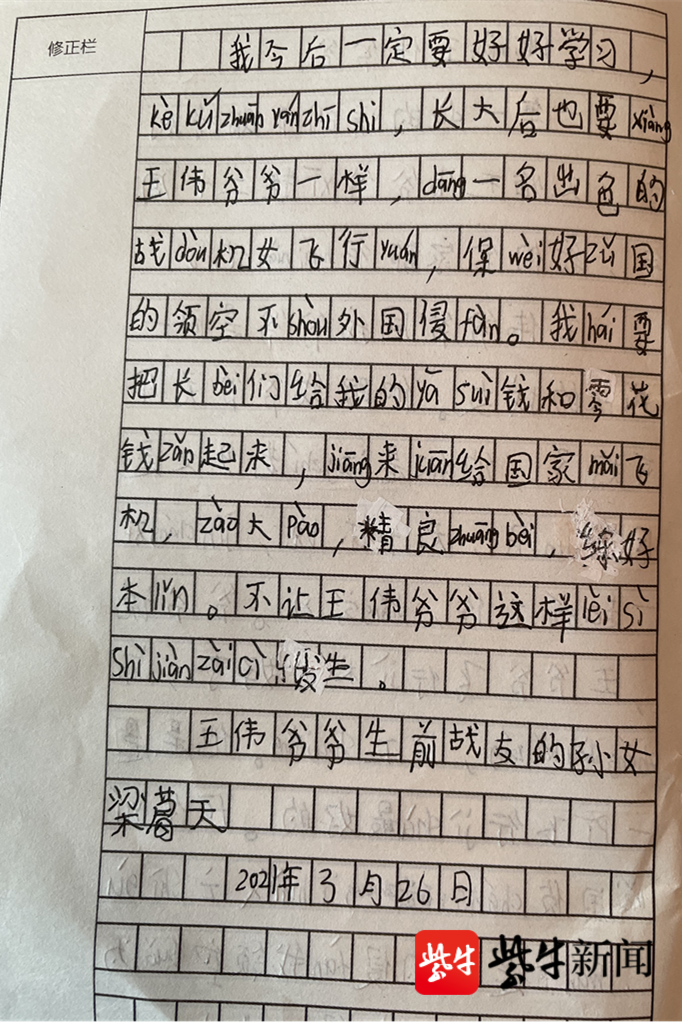 修正栏
我今后一定要好好学习，
kè kǔ zhuān yán zhī shi，长大后也要xiàng
王伟爷爷一样，dāng一名出色的
战dòu机女飞行yuán，保wèi好zǔ国
的领空不shòu外国侵fàn。我hái要
把长bèi们给我的yā suì钱和零花
钱zǎn起来，jiāng来juān给国家mǎi飞
机，zào大pào，精良zhuāng bèi，练好
本lǐn。不让王伟爷爷这样lèi sì
shì jiàn zài cì发生。
王伟爷爷生前战友的孙女
梁葛天
2021年3月26日
紫牛 紫牛新闻